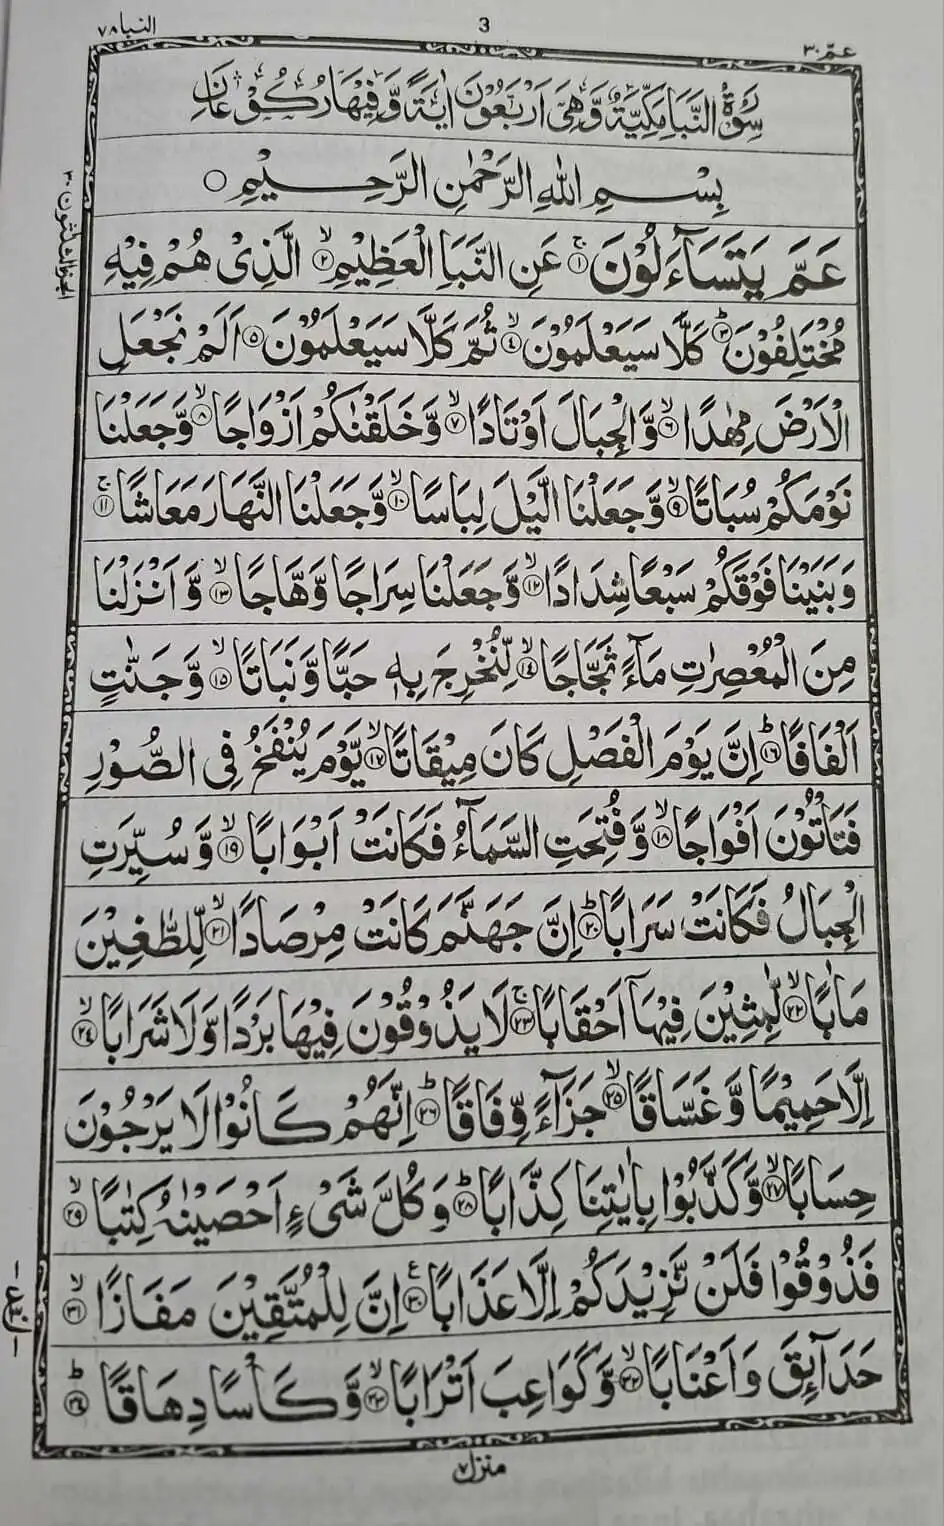 النبا ٧٨
3
عم ٣٠
سورة النبا مكية وهى اربعون اية وفيها ركوعان
بِسْمِ اللهِ الرَّحْمٰنِ الرَّحِيْمِ ○
عَمَّ يَتَسَآءَلُوْنَ ۚ‏﴿١﴾ عَنِ النَّبَاِ الْعَظِيْمِ ۙ‏﴿٢﴾ الَّذِىْ هُمْ فِيْهِ
مُخْتَلِفُوْنَ ؕ‏﴿٣﴾ كَلَّا سَيَعْلَمُوْنَ ۙ‏﴿٤﴾ ثُمَّ كَلَّا سَيَعْلَمُوْنَ ﴿٥﴾ اَلَمْ نَجْعَلِ
الْاَرْضَ مِهٰدًا ۙ‏﴿٦﴾ وَّالْجِبَالَ اَوْتَادًا ۙ‏﴿٧﴾ وَّخَلَقْنٰكُمْ اَزْوَاجًا ۙ‏﴿٨﴾ وَّجَعَلْنَا
نَوْمَكُمْ سُبَاتًا ۙ‏﴿٩﴾ وَّجَعَلْنَا الَّيْلَ لِبَاسًا ۙ‏﴿١٠﴾ وَّجَعَلْنَا النَّهَارَ مَعَاشًا ۚ‏﴿١١﴾
وَبَنَيْنَا فَوْقَكُمْ سَبْعًا شِدَادًا ۙ‏﴿١٢﴾ وَّجَعَلْنَا سِرَاجًا وَّهَّاجًا ۙ‏﴿١٣﴾ وَّاَنْزَلْنَا
مِنَ الْمُعْصِرٰتِ مَآءً ثَجَّاجًا ۙ‏﴿١٤﴾ لِّنُخْرِجَ بِهٖ حَبًّا وَّنَبَاتًا ۙ‏﴿١٥﴾ وَّجَنّٰتٍ
اَلْفَافًا ؕ‏﴿١٦﴾ اِنَّ يَوْمَ الْفَصْلِ كَانَ مِيْقَاتًا ۙ‏﴿١٧﴾ يَّوْمَ يُنْفَخُ فِى الصُّوْرِ
فَتَاْتُوْنَ اَفْوَاجًا ۙ‏﴿١٨﴾ وَّفُتِحَتِ السَّمَآءُ فَكَانَتْ اَبْوَابًا ۙ‏﴿١٩﴾ وَّسُيِّرَتِ
الْجِبَالُ فَكَانَتْ سَرَابًا ؕ‏﴿٢٠﴾ اِنَّ جَهَنَّمَ كَانَتْ مِرْصَادًا ۙ‏﴿٢١﴾ لِّلطّٰغِيْنَ
مَاٰبًا ۙ‏﴿٢٢﴾ لّٰبِثِيْنَ فِيْهَاۤ اَحْقَابًا ۚ‏﴿٢٣﴾ لَا يَذُوْقُوْنَ فِيْهَا بَرْدًا وَّلَا شَرَابًا ۙ‏﴿٢٤﴾
اِلَّا حَمِيْمًا وَّغَسَّاقًا ۙ‏﴿٢٥﴾ جَزَآءً وِّفَاقًا ؕ‏﴿٢٦﴾ اِنَّهُمْ كَانُوْا لَا يَرْجُوْنَ
حِسَابًا ۙ‏﴿٢٧﴾ وَّكَذَّبُوْا بِاٰيٰتِنَا كِذَّابًا ؕ‏﴿٢٨﴾ وَكُلَّ شَىْءٍ اَحْصَيْنٰهُ كِتٰبًا ۙ‏﴿٢٩﴾
فَذُوْقُوْا فَلَنْ نَّزِيْدَكُمْ اِلَّا عَذَابًا ۧ‏﴿٣٠﴾ اِنَّ لِلْمُتَّقِيْنَ مَفَازًا ۙ‏﴿٣١﴾
حَدَآئِقَ وَاَعْنَابًا ۙ‏﴿٣٢﴾ وَّكَوَاعِبَ اَتْرَابًا ۙ‏﴿٣٣﴾ وَّكَاْسًا دِهَاقًا ؕ‏﴿٣٤﴾
منزل ٧
الجزء الثلثون ٣٠